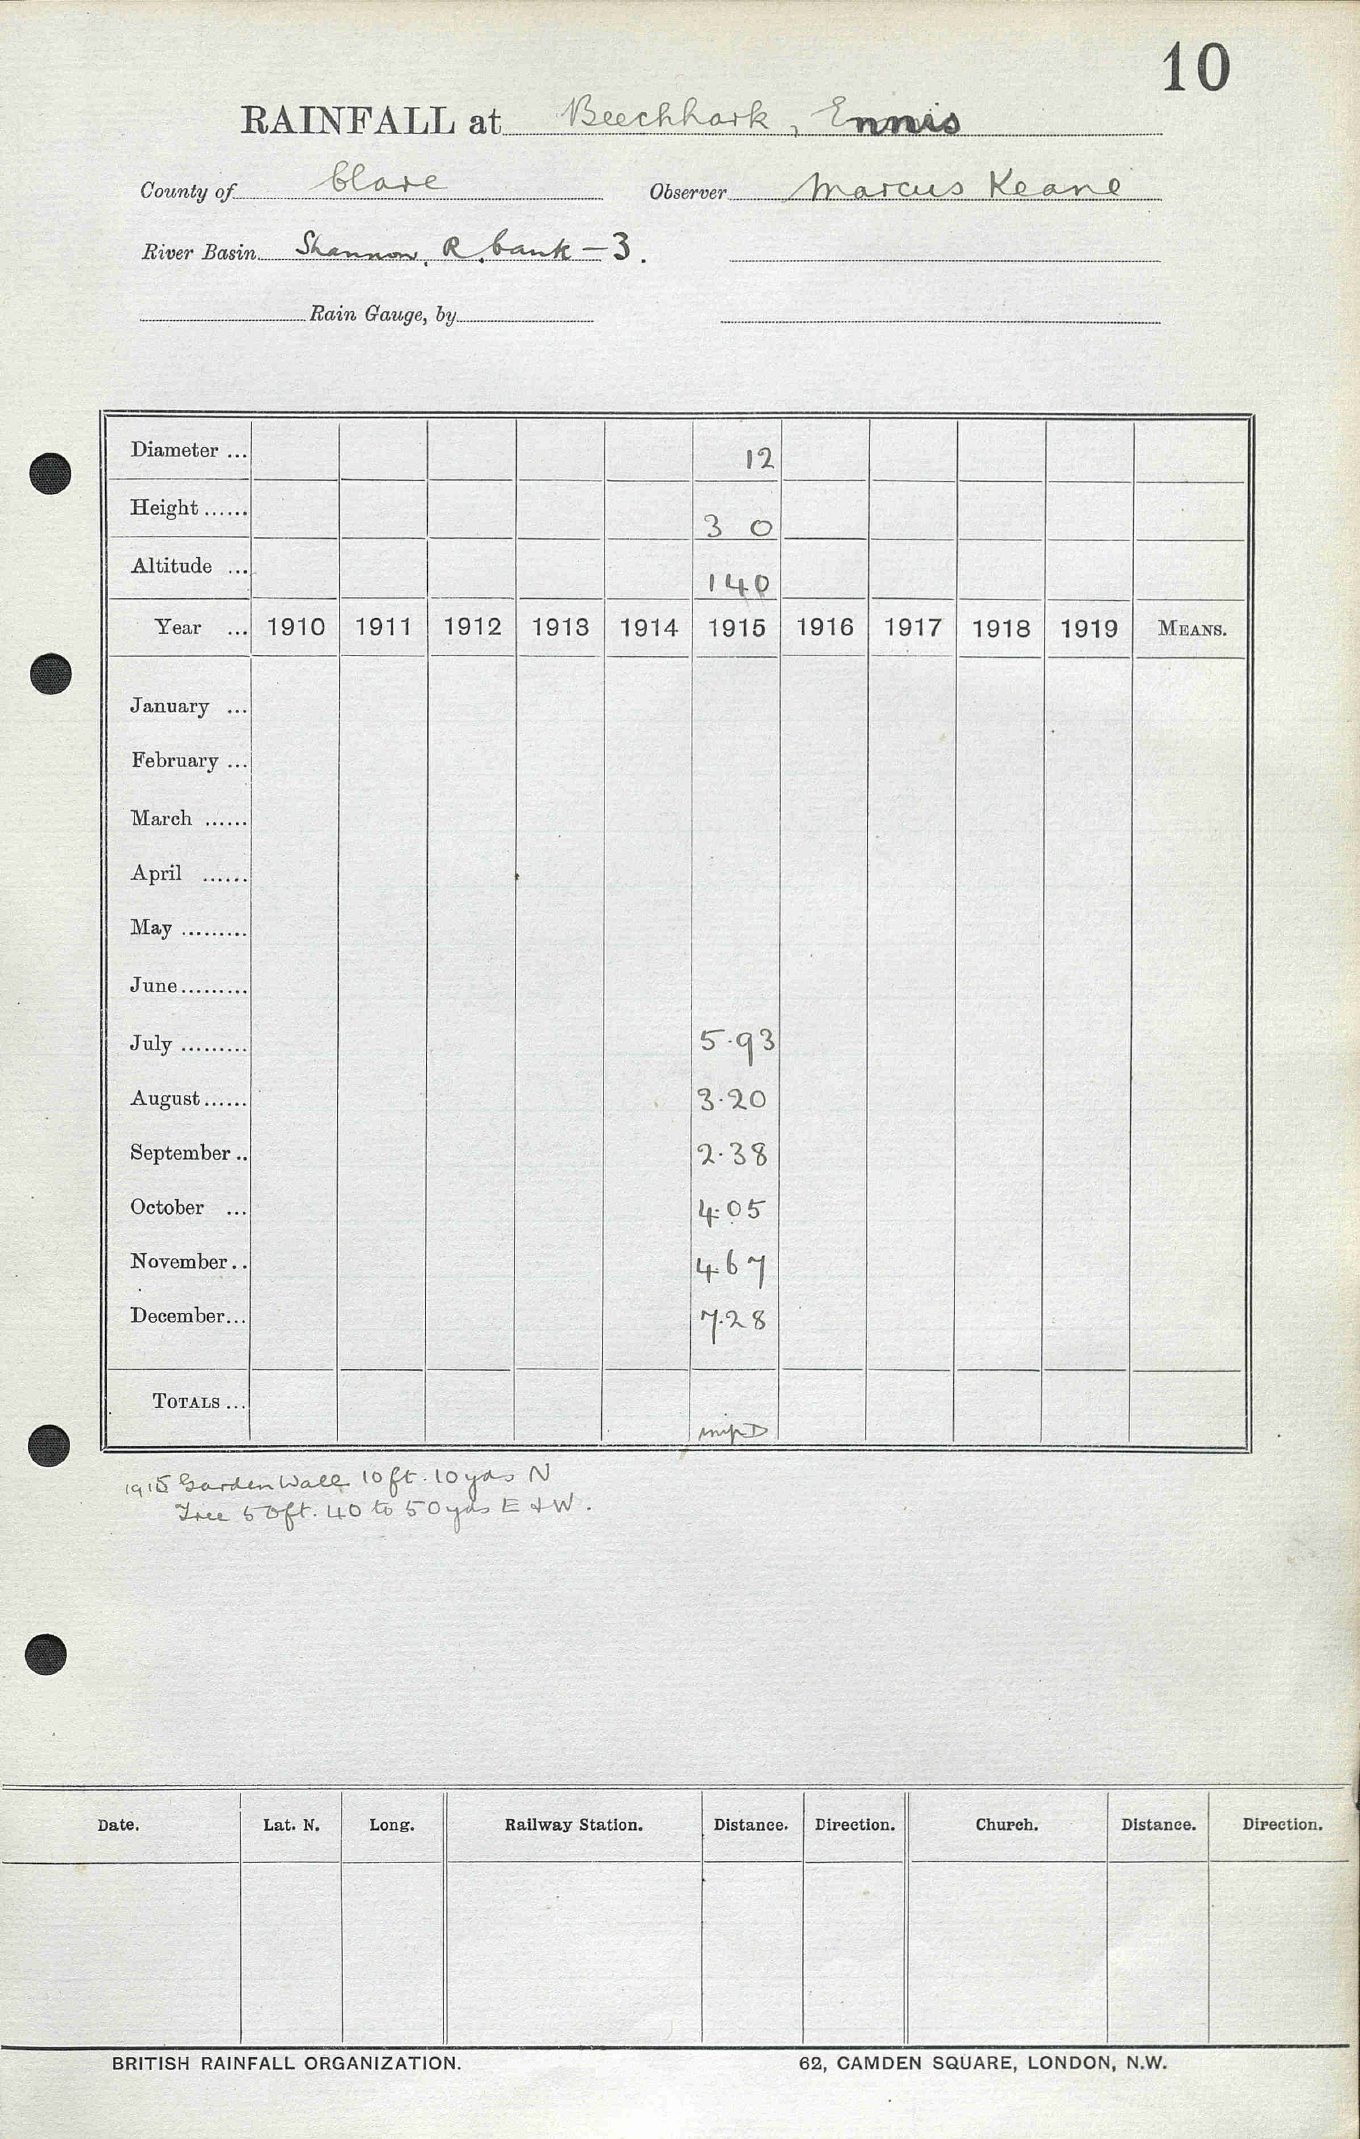 10
RAINFALL at Beechhark, Ennis
County of Clare Observer Marcus Keane
River Basin Shannon, R. bank - 3.
Rain Gauge, by
Diameter ... 12
Height ...... 3 0
Altitude ... 140
Year ... 1910 1911 1912 1913 1914 1915 1916 1917 1918 1919 MEANS.
January ...
February ...
March ......
April ......
May .........
June.........
July ......... 5.93
August...... 3.20
September .. 2.38
October ... 4.05
November.. 4.67
December... 7.28
TOTALS ...
1915 Garden Wall 10ft. 10yds N
Tree 50ft. 40 to 50yds E & W.
Date. Lat. N. Long. Railway Station. Distance. Direction. Church. Distance. Direction.
BRITISH RAINFALL ORGANIZATION. 62, CAMDEN SQUARE, LONDON, N.W.